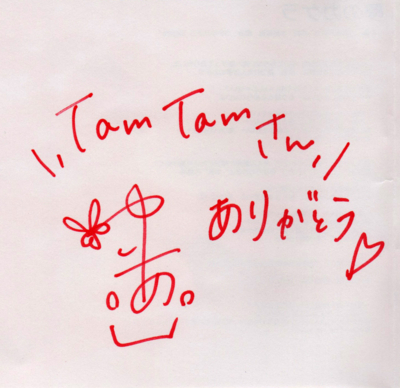 Tam Tam さん
ありがとう♡